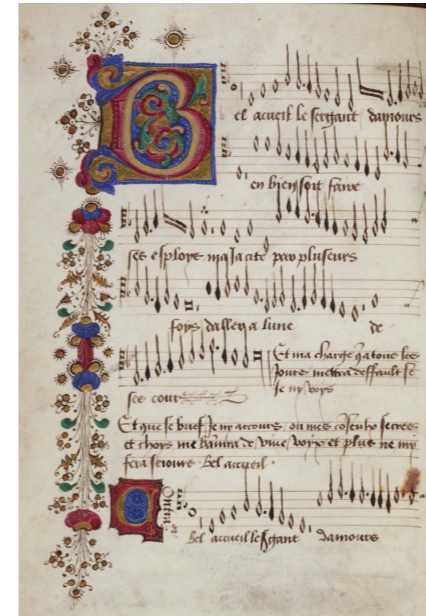 Bel acueil le sergant damours
en bien soit faire
ses esploys ma ja cite par pluseurs
foys daller a lune de
ses cours
Et ma charge qa toue les
jours mettra deffault se
je ny voys
Et que se brief je ny accours
et chors me banira de vive voys et plus ne my
fera secours Bel accueil
Bel accueil le sgant damours